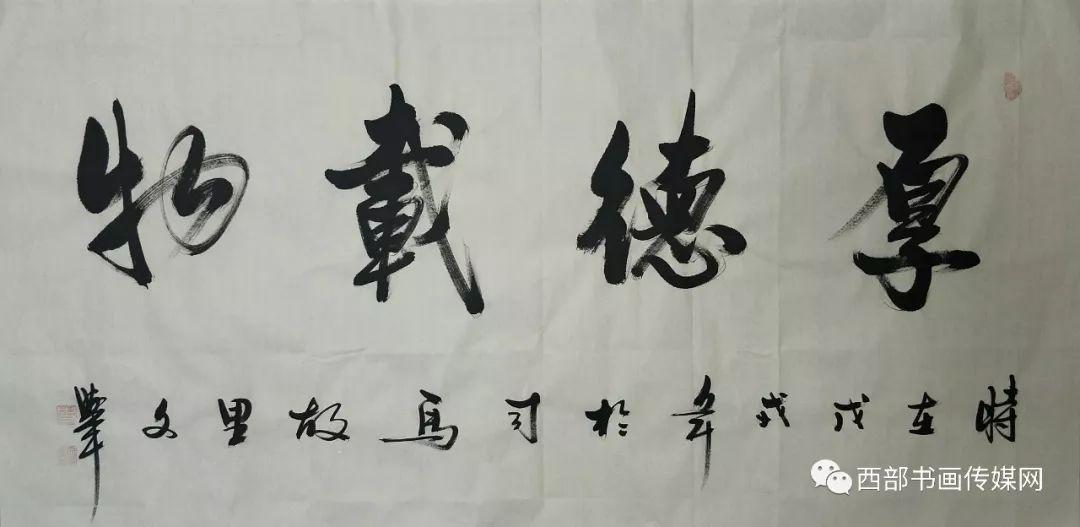 厚德載物
時在戊戌年於司馬故里文
西部书画传媒网